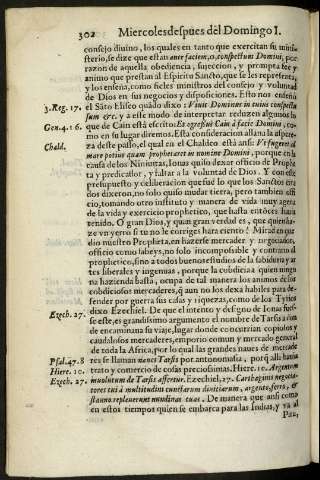 302 Miercoles despues del Domingo I.
consejo diuino, los quales en tanto que exercitan su minis
terio, se dize que estan ante faciem, o, conspectum Domini, por
razon de aquella obediencia, sujecion, y prompta fee y
animo que prestan al Espiritu Sancto, que se les representa,
y los enseña, como fieles ministros del consejo y voluntad
de Dios en sus negocios y disposiciones. Esto nos enseñó
3. Reg. 17. el Sāto Eliseo quādo dixo: Viuit Dominus in cuius conspectu
sum &c. y a este modo de interpretar reduzen algunos lo
Gen. 4. 16. que de Cain está escrito: Et egressus Cain à facie Domini, co-
mo en su lugar diremos. Esta consideracion allana la aspere-
Chald. za deste passo, el qual en el Chaldeo está ansi: Vt fugeret ad
mare potius quam prophetaret in nomine Domini, porque en la
causa de los Niniuitas, Ionas quiso dexar officio de Prophe
ta y predicador, y faltar a la voluntad de Dios. Y con este
presupuesto y deliberacion que fue lo que los Sanctos cre
dos dixeron, no solo quiso mudar tierra, pero tambien offi
cio, tomando otro instituto y manera de vida muy agena
de la vida y exercicio prophetico, que hasta entōces auia
tenido. O gran Dios, y quan gran verdad es, que quien ha-
ze vn yerro si tu no le corriges hara ciento! Mirad en que
dio nuestro Propheta, en hazerse mercader y negociador,
officio como sabeys, no solo incompossible y contrario al
prophetico, sino a todos buenos estudios de la sabiduria y ar
tes liberales y ingenuas, porque la cobdicia a quien ningu
na hazienda basta, ocupa de tal manera los animos de los
cobdiciosos mercaderes, q̄ aun no los dexa habiles para de-
fender por guerra sus casas y riquezas, como de los Tyrios
Ezech. 27. dixo Ezechiel. De que el intento y desigño de Ionas fues-
se este, es grandissimo argumento el nombre de Tarsis a don
de encaminaua su viaje, lugar donde concurrian copiosos y
caudalosos mercaderes, emporio comun y mercado general
de toda la Africa, por lo qual las grandes naues de mercade
Psal. 47. 8 res se llaman naues Tarsis por antonomasia, porq̄ alli hauia
Hiere. 10. trato y comercio de cosas preciosissimas. Hiere. 10. Argentum
Ezech. 27. inuolutum de Tarsis affertur. Ezechiel, 27. Carthaginēs negocia-
tores tui à multitudine cunctarum diuitiarum, argento, ferro, &
stanno repleuerunt nundinas tuas. De manera que ansi como
en estos tiempos quien se embarca para las Indias, y va al
Piru,